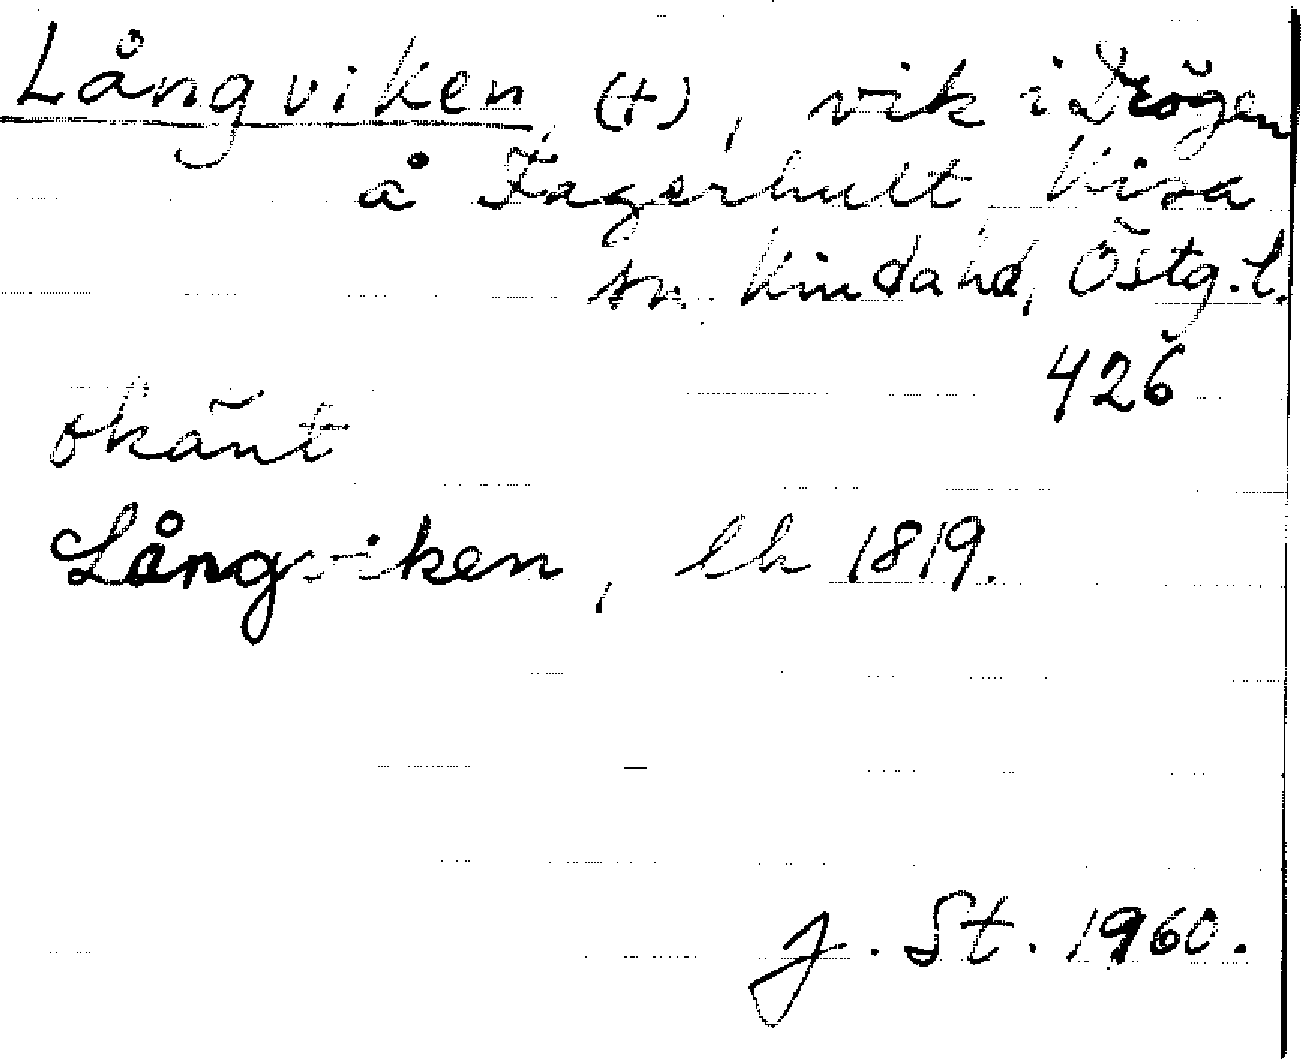 Långviken (+), vik i Drögen
å Fagerhult, Kisa
sn. Kinda hd, Östg.l.
426
okänt
Långviken, lk 1819.
J. St. 1960.